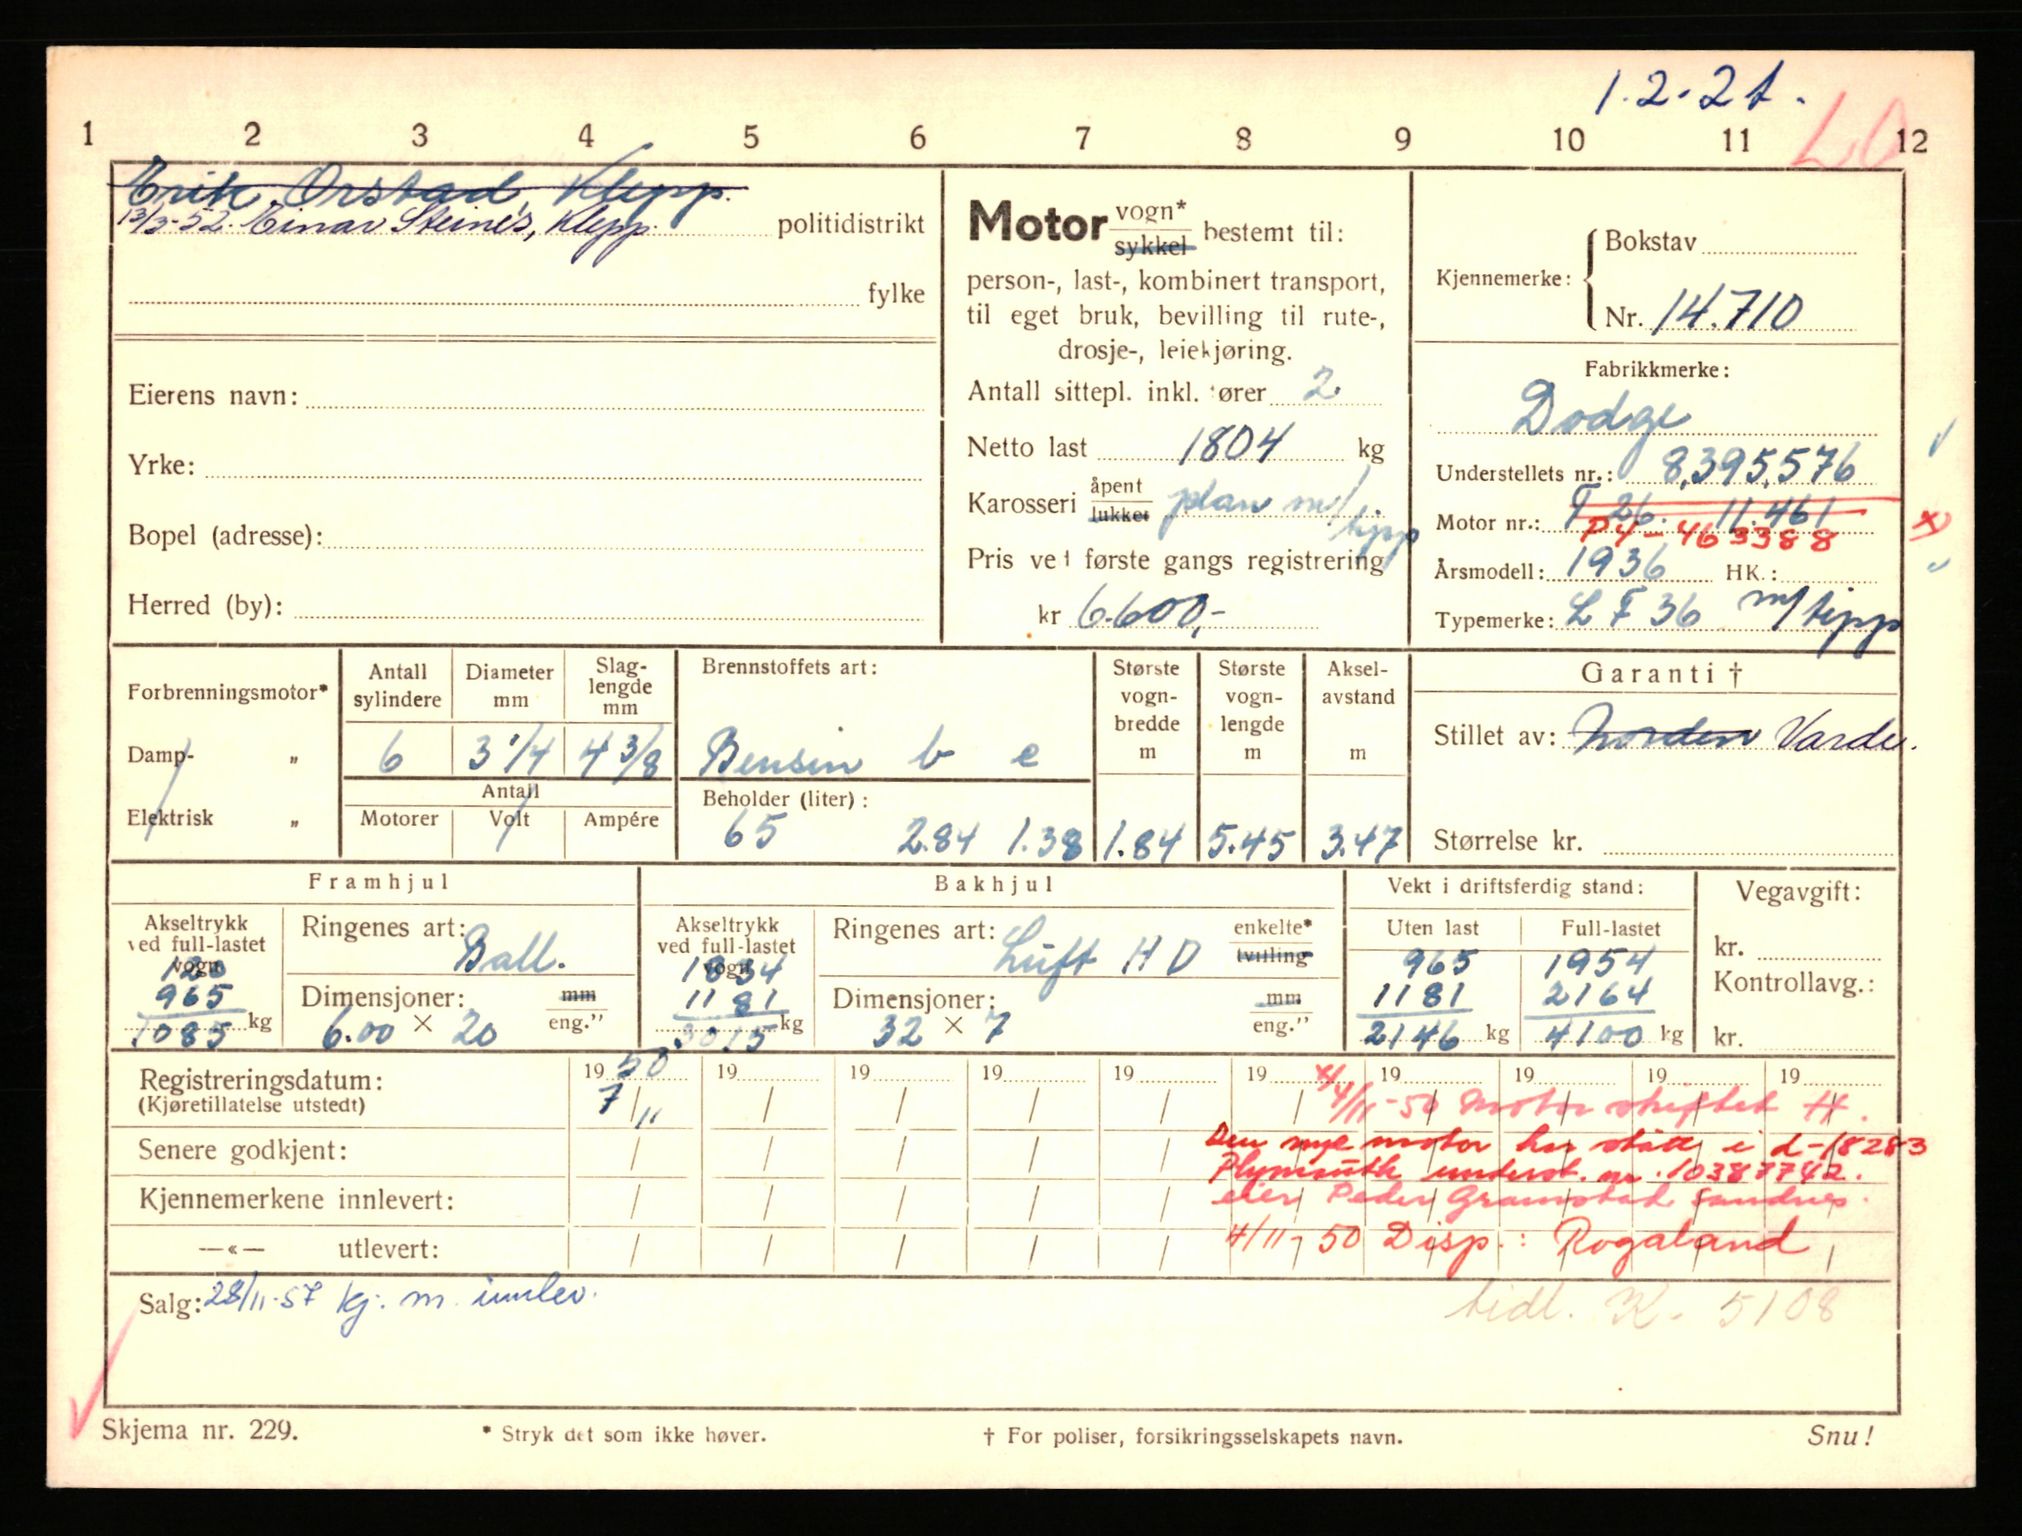 1.2-2t.
LO
1 2 3 4 5 6 7 8 9 10 11 12
Erik Orstad, Klepp.
13/3-52. Einar Steines, Klepp. politidistrikt
fylke
Eierens navn:
Yrke:
Bopel (adresse):
Herred (by):
Motor vogn* sykkel bestemt til:
person-, last-, kombinert transport,
til eget bruk, bevilling til rute-,
drosje-, leiekjøring.
Antall sittepl. inkl. fører 2
Netto last 1804 kg
Karosseri åpent lukket plan m/tipp
Pris ved første gangs registrering
kr 6.600,-
Kjennemerke: Bokstav
Nr. 14.710
Fabrikkmerke:
Dodge
Understellets nr.: 8,395,576
Motor nr.: T 26. 11.461
P4-463388
Årsmodell: 1936 HK.:
Typemerke: L F 36 m/tipp
Forbrenningsmotor*
Damp- „
Elektrisk „
Antall sylindere 6
Diameter mm 3 1/4
Slag-lengde mm 4 3/8
Antall
Motorer Volt Ampére
Brennstoffets art:
Bensin b e
Beholder (liter):
65 2.84 1.38
Største vogn-bredde m 1.84
Største vogn-lengde m 5.45
Aksel-avstand m 3.47
Garanti †
Stillet av: Norden Varde.
Størrelse kr.
Framhjul
Akseltrykk ved full-lastet vogn
120
965
1085 kg
Ringenes art: Ball.
Dimensjoner: mm eng.”
6.00 × 20
Bakhjul
Akseltrykk ved full-lastet vogn
1834
1181
3015 kg
Ringenes art: Luft H D enkelte* tvilling
Dimensjoner: mm eng.”
32 × 7
Vekt i driftsferdig stand:
Uten last Full-lastet
965 1954
1181 2164
2146 kg 4100 kg
Vegavgift:
kr.
Kontrollavg.:
kr.
Registreringsdatum: 19 50 19 19 19 19 19 19 19 19 19
(Kjøretillatelse utstedt) 7/11
x/ 4/11-50 Motor skiftet H.
Senere godkjent:
Den nye motor har stått i L-18283
Plymouth underst. nr. 10387742.
Kjennemerkene innlevert:
eier Peder Gramstad Sandnes.
—«— utlevert:
4/11-50 Disp.: Rogaland
Salg: 28/11-57 kj. m. innlev.
tidl. K-5108
Skjema nr. 229.
* Stryk det som ikke høver.
† For poliser, forsikringsselskapets navn.
Snu!